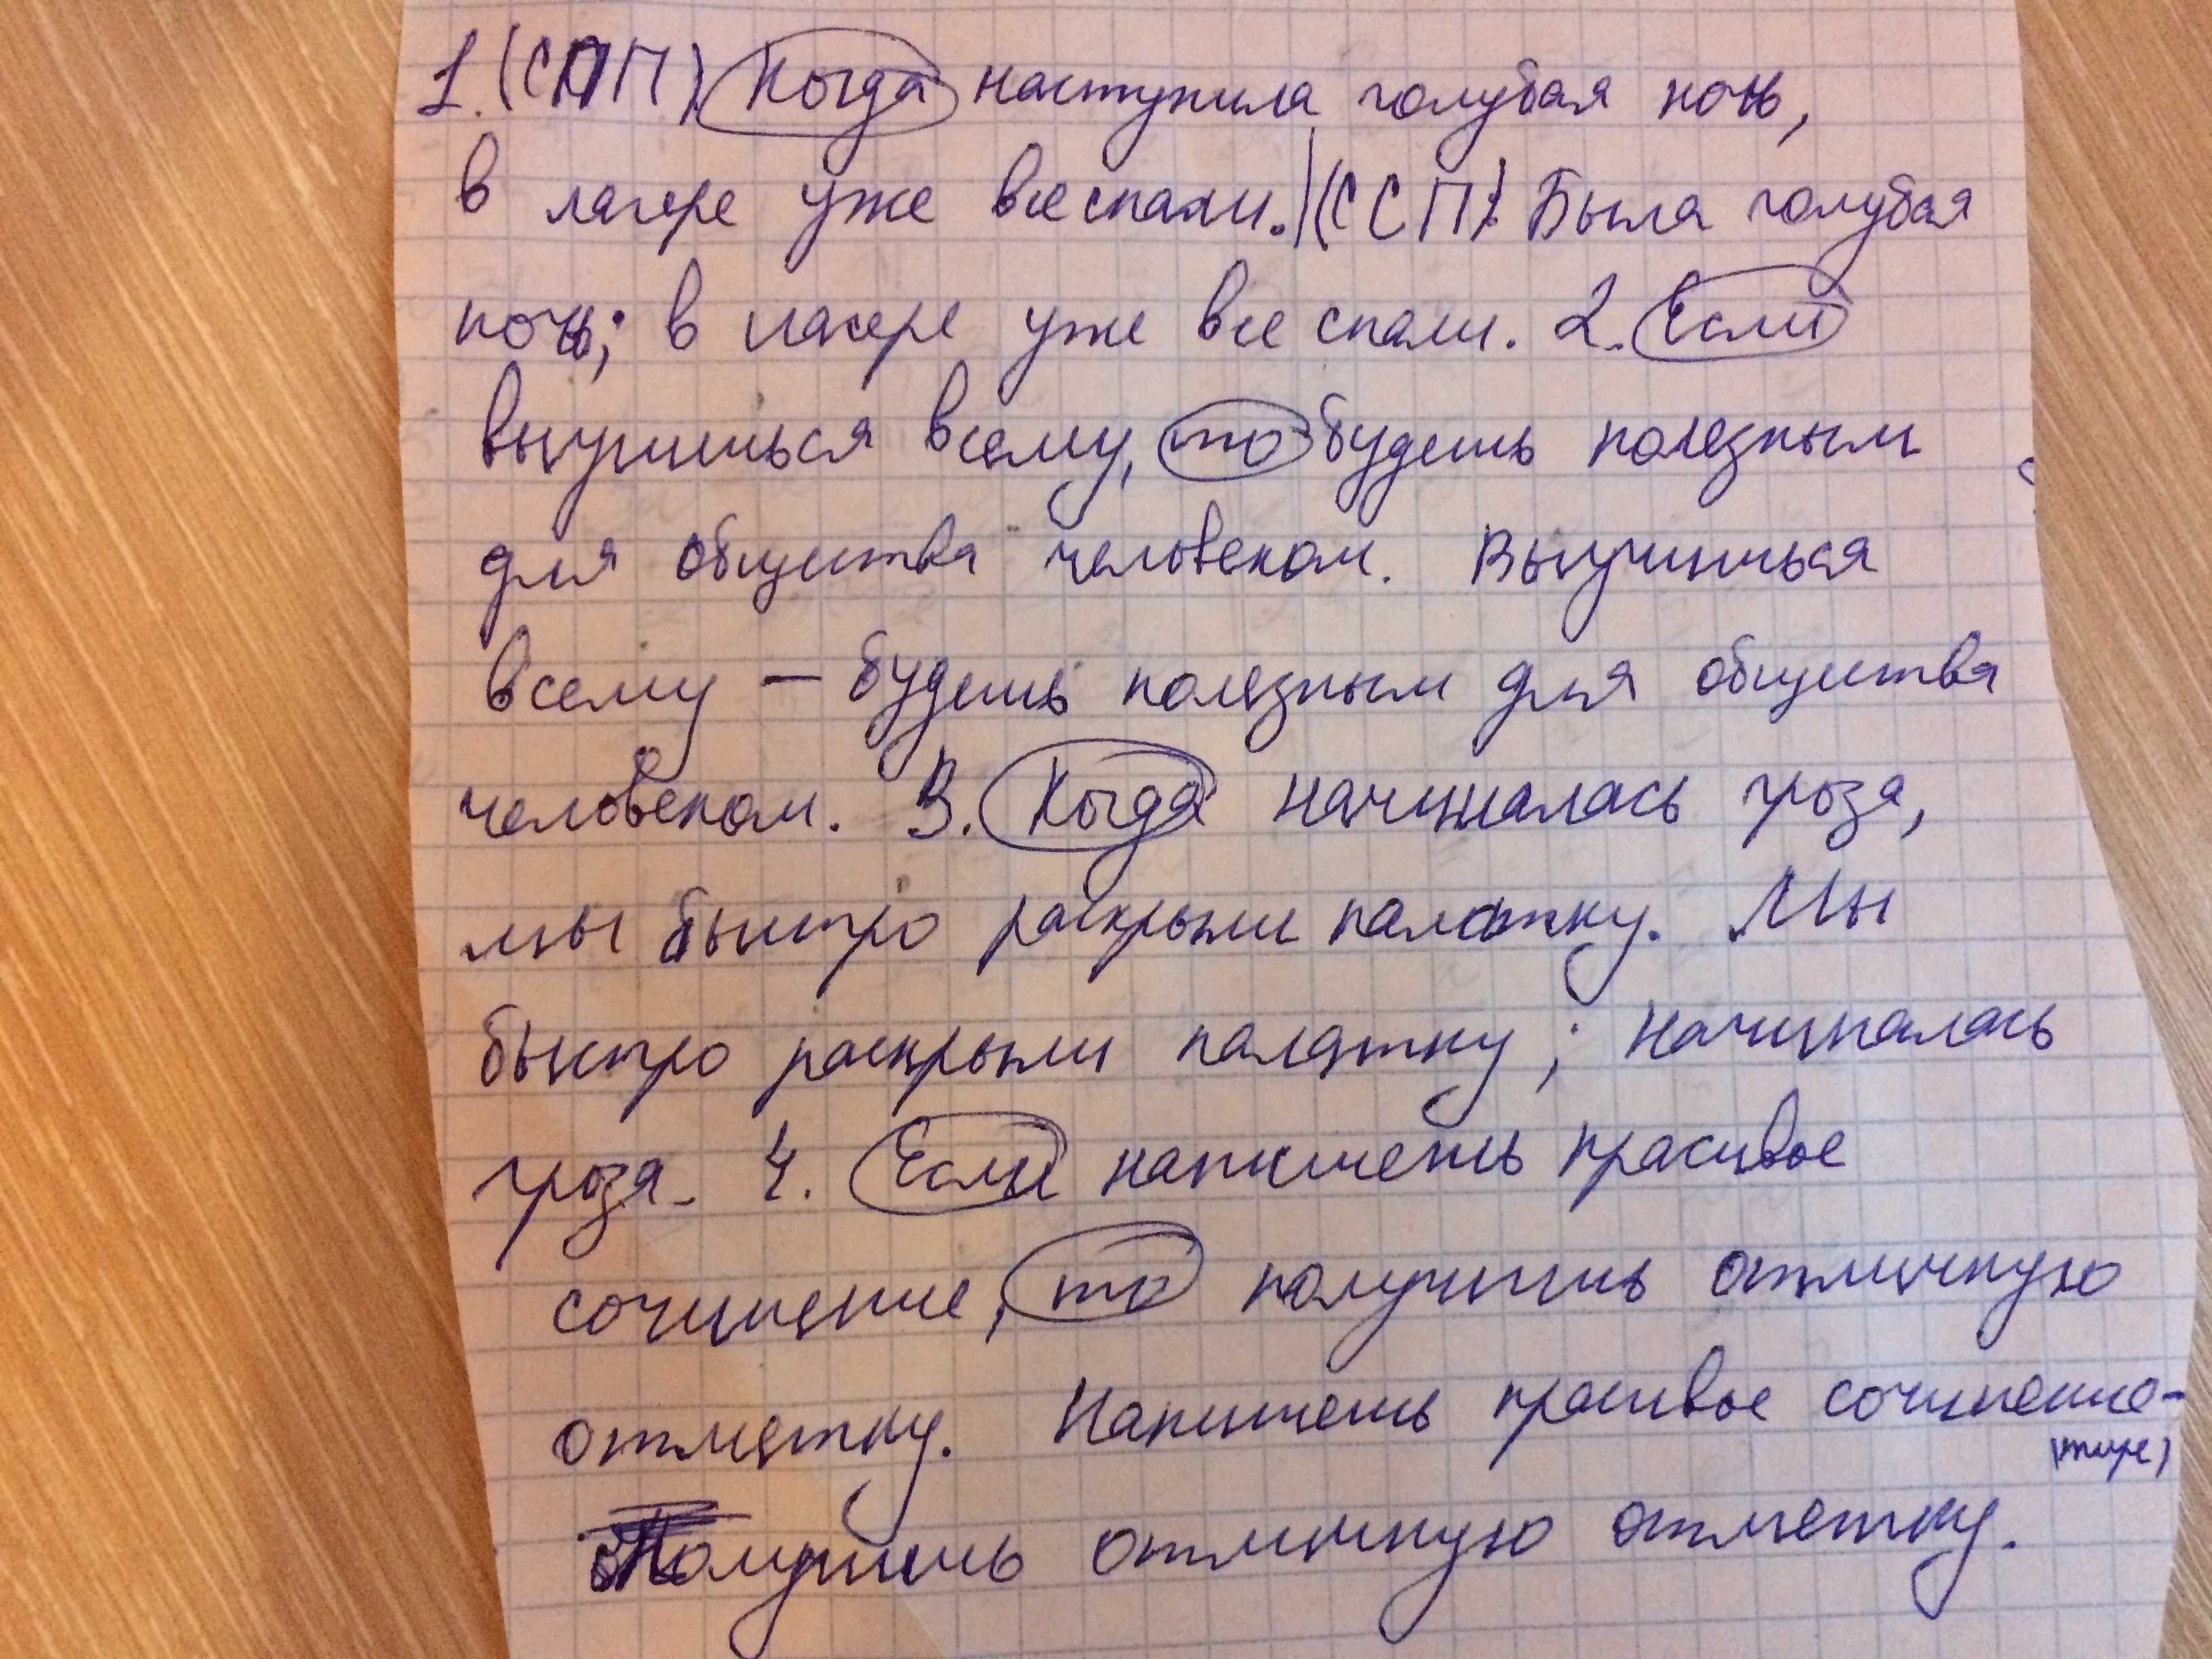 1. (СПП) Когда наступила голубая ночь,
в лагере уже все спали. (ССП) Была голубая
ночь; в лагере уже все спали. 2. Если
выучишься всему, то будешь полезным
для общества человеком. Выучишься
всему – будешь полезным для общества
человеком. 3. Когда начиналась гроза,
мы быстро раскрыли палатку. Мы
быстро раскрыли палатку; начиналась
гроза. 4. Если напишешь красивое
сочинение, то получишь отличную
отметку. Напишешь красивое сочинение -
(тире)
получишь отличную отметку.